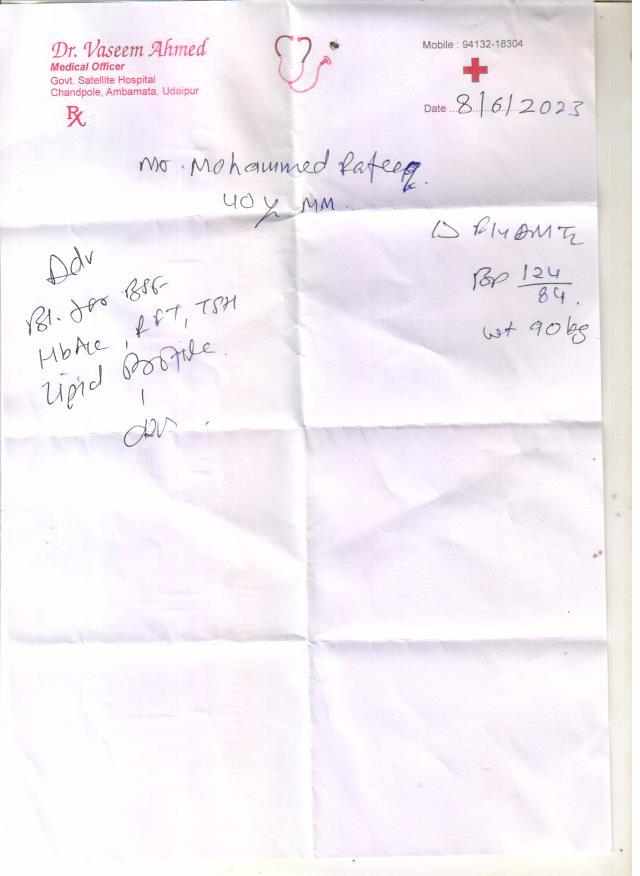 Dr. Vaseem Ahmed
Medical Officer
Govt. Satellite Hospital
Chandpole, Ambamata, Udaipur
Rx
Mobile : 94132-18304
Date 8/6/2023
Mr. Mohammed Rafeeq.
40 y MM.
BP 124/84.
wt 90kg
Adv
Bl. for BSF
HbA1c, RFT, TSH
Lipid Profile.